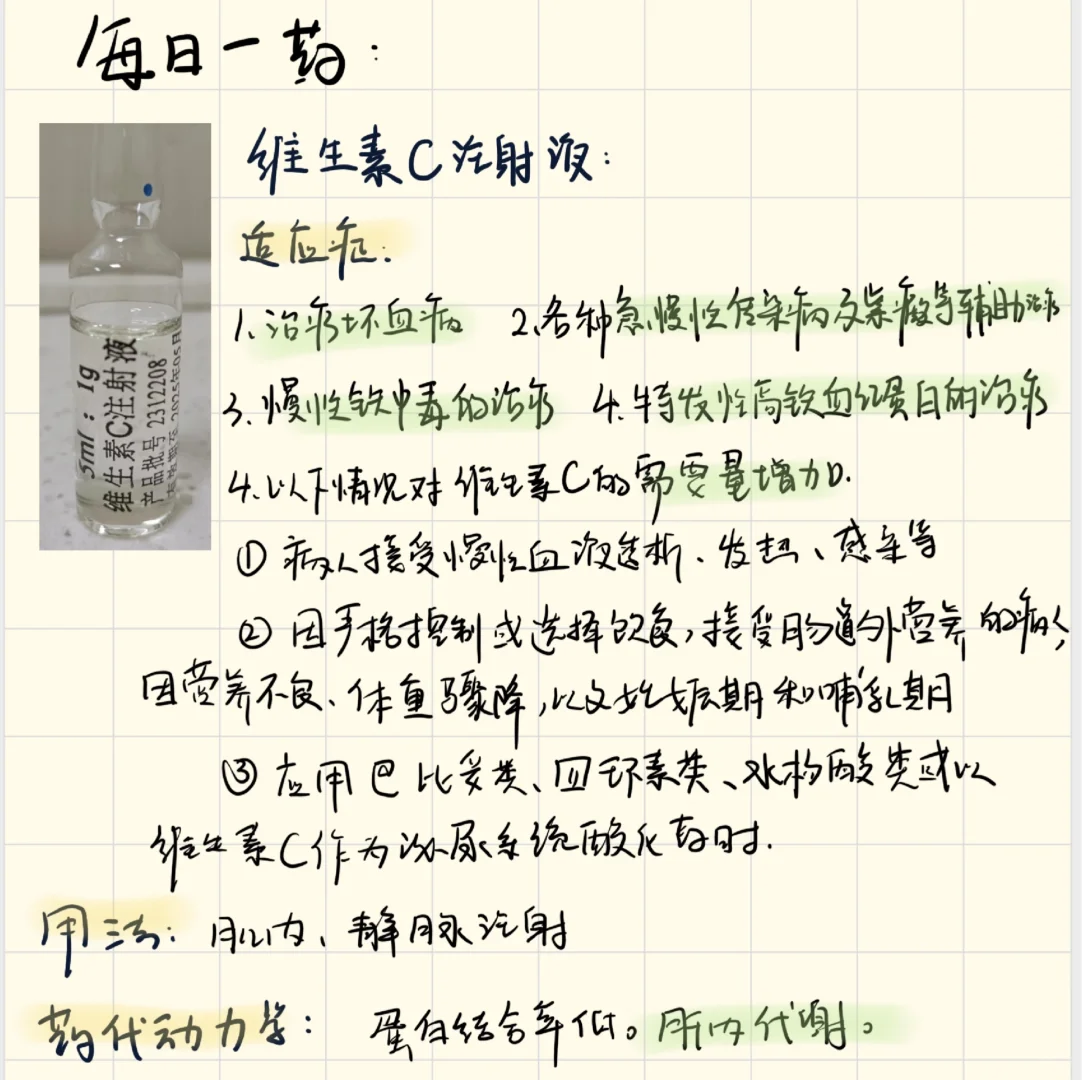 每日一药：
维生素C注射液：
适应症：
1.治疗坏血病 2.各种急慢性传染病及紫癜等辅助治疗
3.慢性铁中毒的治疗 4.特发性高铁血红蛋白的治疗
4.以下情况对维生素C的需要量增加.
① 病人接受慢性血液透析、发热、感染等
② 因严格控制或选择饮食,接受肠道外营养的病人,
因营养不良、体重骤降,以及妊娠期和哺乳期
③ 应用巴比妥类、四环素类、水杨酸类或以
维生素C作为泌尿系统酸化药时.
用法：肌内、静脉注射
药代动力学：蛋白结合率低。肝内代谢。
5ml：1g
维生素C注射液
产品批号 2312208